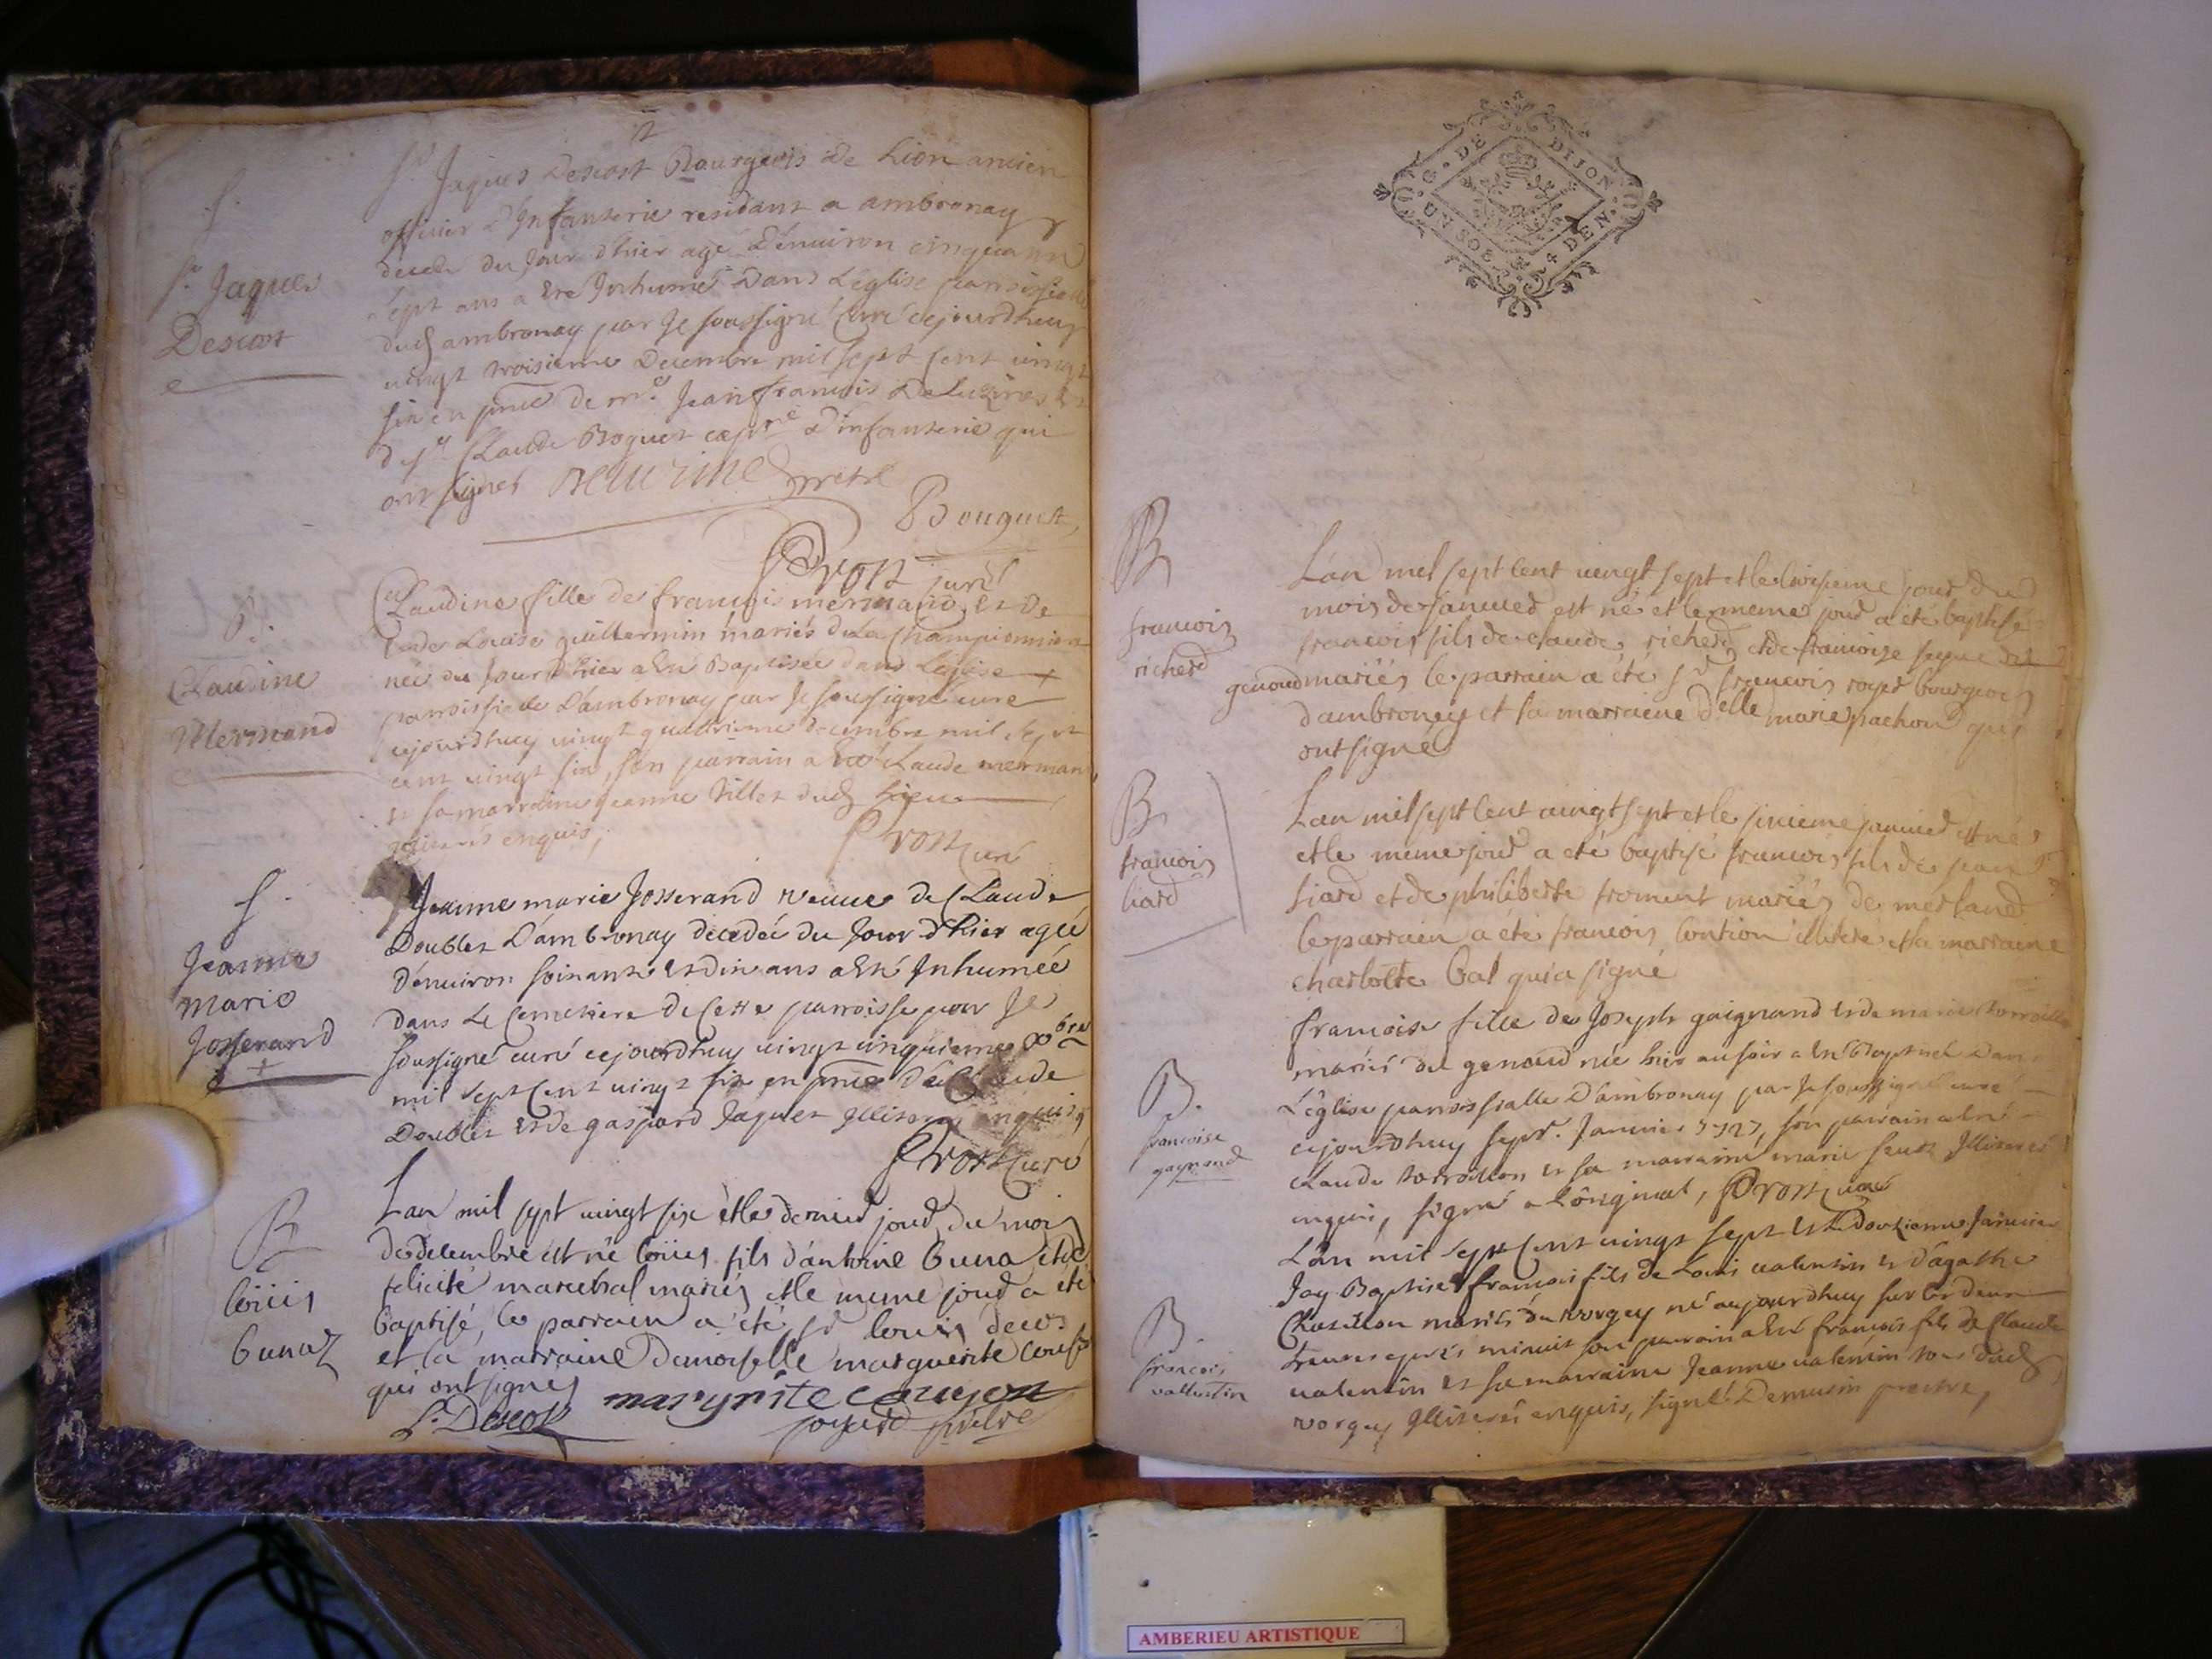 S.
Sr Jaques
Descost
Sr Jaques Descost Bourgeois de Lion ancien
officier d'Infanterie residant a ambronay
decedé du Jour d'hier agé d'énuiron cinquante
sept ans a Eté Inhumé dans L'église parroissialle
dud ambronay par Je soussigné Curé cejourdhuy
uingt troisieme decembre mil sept Cent uingt
six en pnce de mre Jean francois
de Sr Claude Boguet capne d'infanterie qui
ont signés pretre
Bouguet
Prost curé
B.
Claudine
Mermand
Claudine fille de francois mermand Et de
Louise guillermin mariés de la Championniere
née du Jour d'hier a Eté Baptisée dans L'eglise
parroissialle d'ambronay par Je soussigné curé
cejourdhuy uingt quatrieme decembre mil sept
cent uingt six, son parrain a Eté Claude mermand
et sa marraine Jeanne Villet dud Lieu
enquis,
Prost curé
S.
Jeanne
Marie
Josserand
Jeanne marie Josserand veuue de Claude
Doublet d'ambronay décedée du Jour d'hier agée
d'énuiron soixante et dix ans a Eté Inhumée
dans Le Cemetiere de Cette parroisse par Je
soussigné curé cejourdhuy uingt cinquieme Xbre
mil sept Cent uingt six en pnce de Claude
Doublet et de gaspard Jaquet Illiterés enquis
Prost curé
B
loüis
Bunaz
Lan mil sept uingt six et le dernier jour du mois
de decembre est né loüis fils d'antoine Buna et de
felicité marechal mariés et le meme jour a été
baptisé, le parrain a été sr louis decos
et la marraine Demoiselle marguerite
qui ont signes
L. Descost
joyard prêtre
G. DE DIJON
UN SOL 4 DEN.
B
francois
richerd
L'an mil sept cent uingt sept et le troisieme jour du
mois de januier est né et le meme jour a été baptisé
francois fils de claude richerd et de francoise
genoud mariés le parrain a été sr francois royer bourgeois
d'ambronay et la marraine delle marie pachoud qui
ont signé
B
francois
liard
Lan mil sept cent uingt sept et le sixieme januier est né
et le meme jour a été baptisé francois fils de jean
liard et de philiberte froment mariés de merland
le parrain a été francois illiteré et la marraine
charlotte bal qui a signé
B.
francoise
gagnand
francoise fille de Joseph gaignand et de marie
mariés du genoud née hier au soir a Eté Baptisée dans
L'église parroissialle d'ambronay par Je soussigné curé
cejourdhuy sept. Januier 1727, son parrain a Eté
Claude et sa marraine marie Illiterés
enquis, signé a L'original, Prost curé
B.
francois
vallentin
L'an mil sept Cent uingt sept et Le douzieme Januier
Jay Baptisé francois fils de Louis ualentin et d'agathe
mariés du vorgey né aujourdhuy sur les deux
heures aprés minuit son parrain a Eté francois fils de Claude
ualentin et sa marraine Jeanne ualentin tous dud
vorgey Illiterés enquis, signé prestre,
AMBERIEU ARTISTIQUE